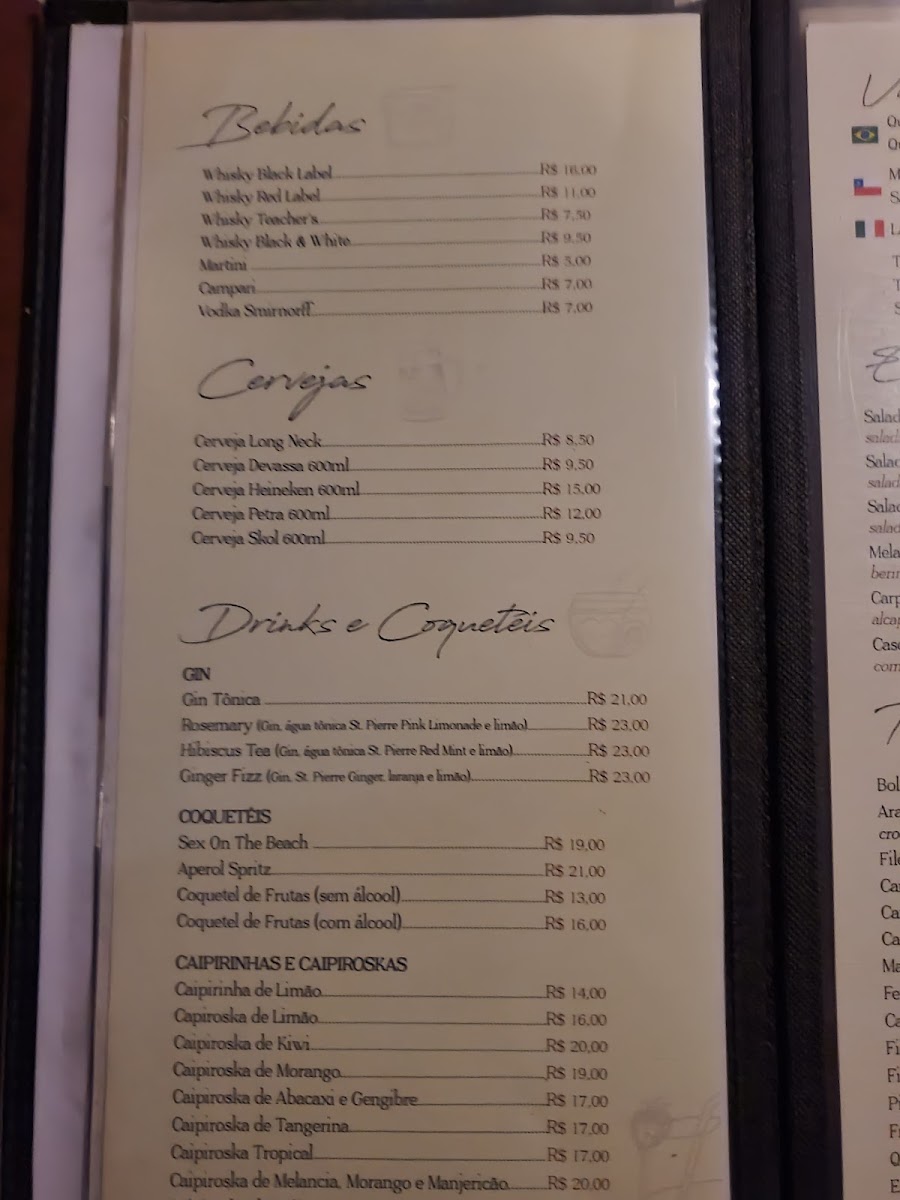 Bebidas
Whisky Black Label R$ 16,00
Whisky Red Label R$ 11,00
Whisky Teacher's R$ 7,50
Whisky Black & White R$ 9,50
Martini R$ 5,00
Campari R$ 7,00
Vodka Smirnorff R$ 7,00
Cervejas
Cerveja Long Neck R$ 8,50
Cerveja Devassa 600ml R$ 9,50
Cerveja Heineken 600ml R$ 15,00
Cerveja Petra 600ml R$ 12,00
Cerveja Skol 600ml R$ 9,50
Drinks e Coquetéis
GIN
Gin Tônica R$ 21,00
Rosemary (Gin, água tônica St. Pierre Pink Limonade e limão) R$ 23,00
Hibiscus Tea (Gin, água tônica St. Pierre Red Mint e limão) R$ 23,00
Ginger Fizz (Gin, St. Pierre Ginger, laranja e limão) R$ 23,00
COQUETÉIS
Sex On The Beach R$ 19,00
Aperol Spritz R$ 21,00
Coquetel de Frutas (sem álcool) R$ 13,00
Coquetel de Frutas (com álcool) R$ 16,00
CAIPIRINHAS E CAIPIROSKAS
Caipirinha de Limão R$ 14,00
Capiroska de Limão R$ 16,00
Caipiroska de Kiwi R$ 20,00
Caipiroska de Morango R$ 19,00
Caipiroska de Abacaxi e Gengibre R$ 17,00
Caipiroska de Tangerina R$ 17,00
Caipiroska Tropical R$ 17,00
Caipiroska de Melancia, Morango e Manjericão R$ 20,00